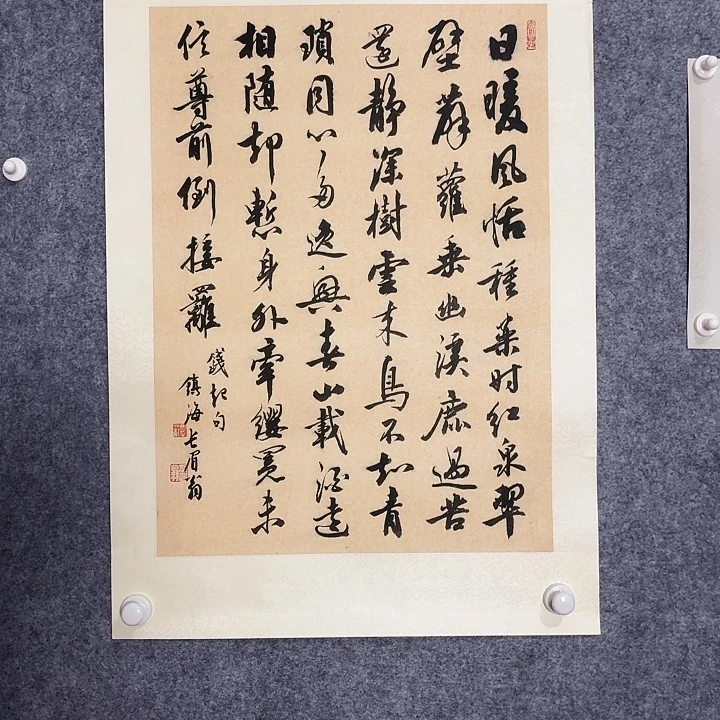 日暖風恬種藥时紅泉翠
壁薜蘿垂幽溪鹿過苔
還靜深樹雲来鳥不知青
瑣同心多逸興春山載酒遠
相随却慙身外牽纓冕未
任尊前倒接䍦
錢起句
鎮海长眉翁